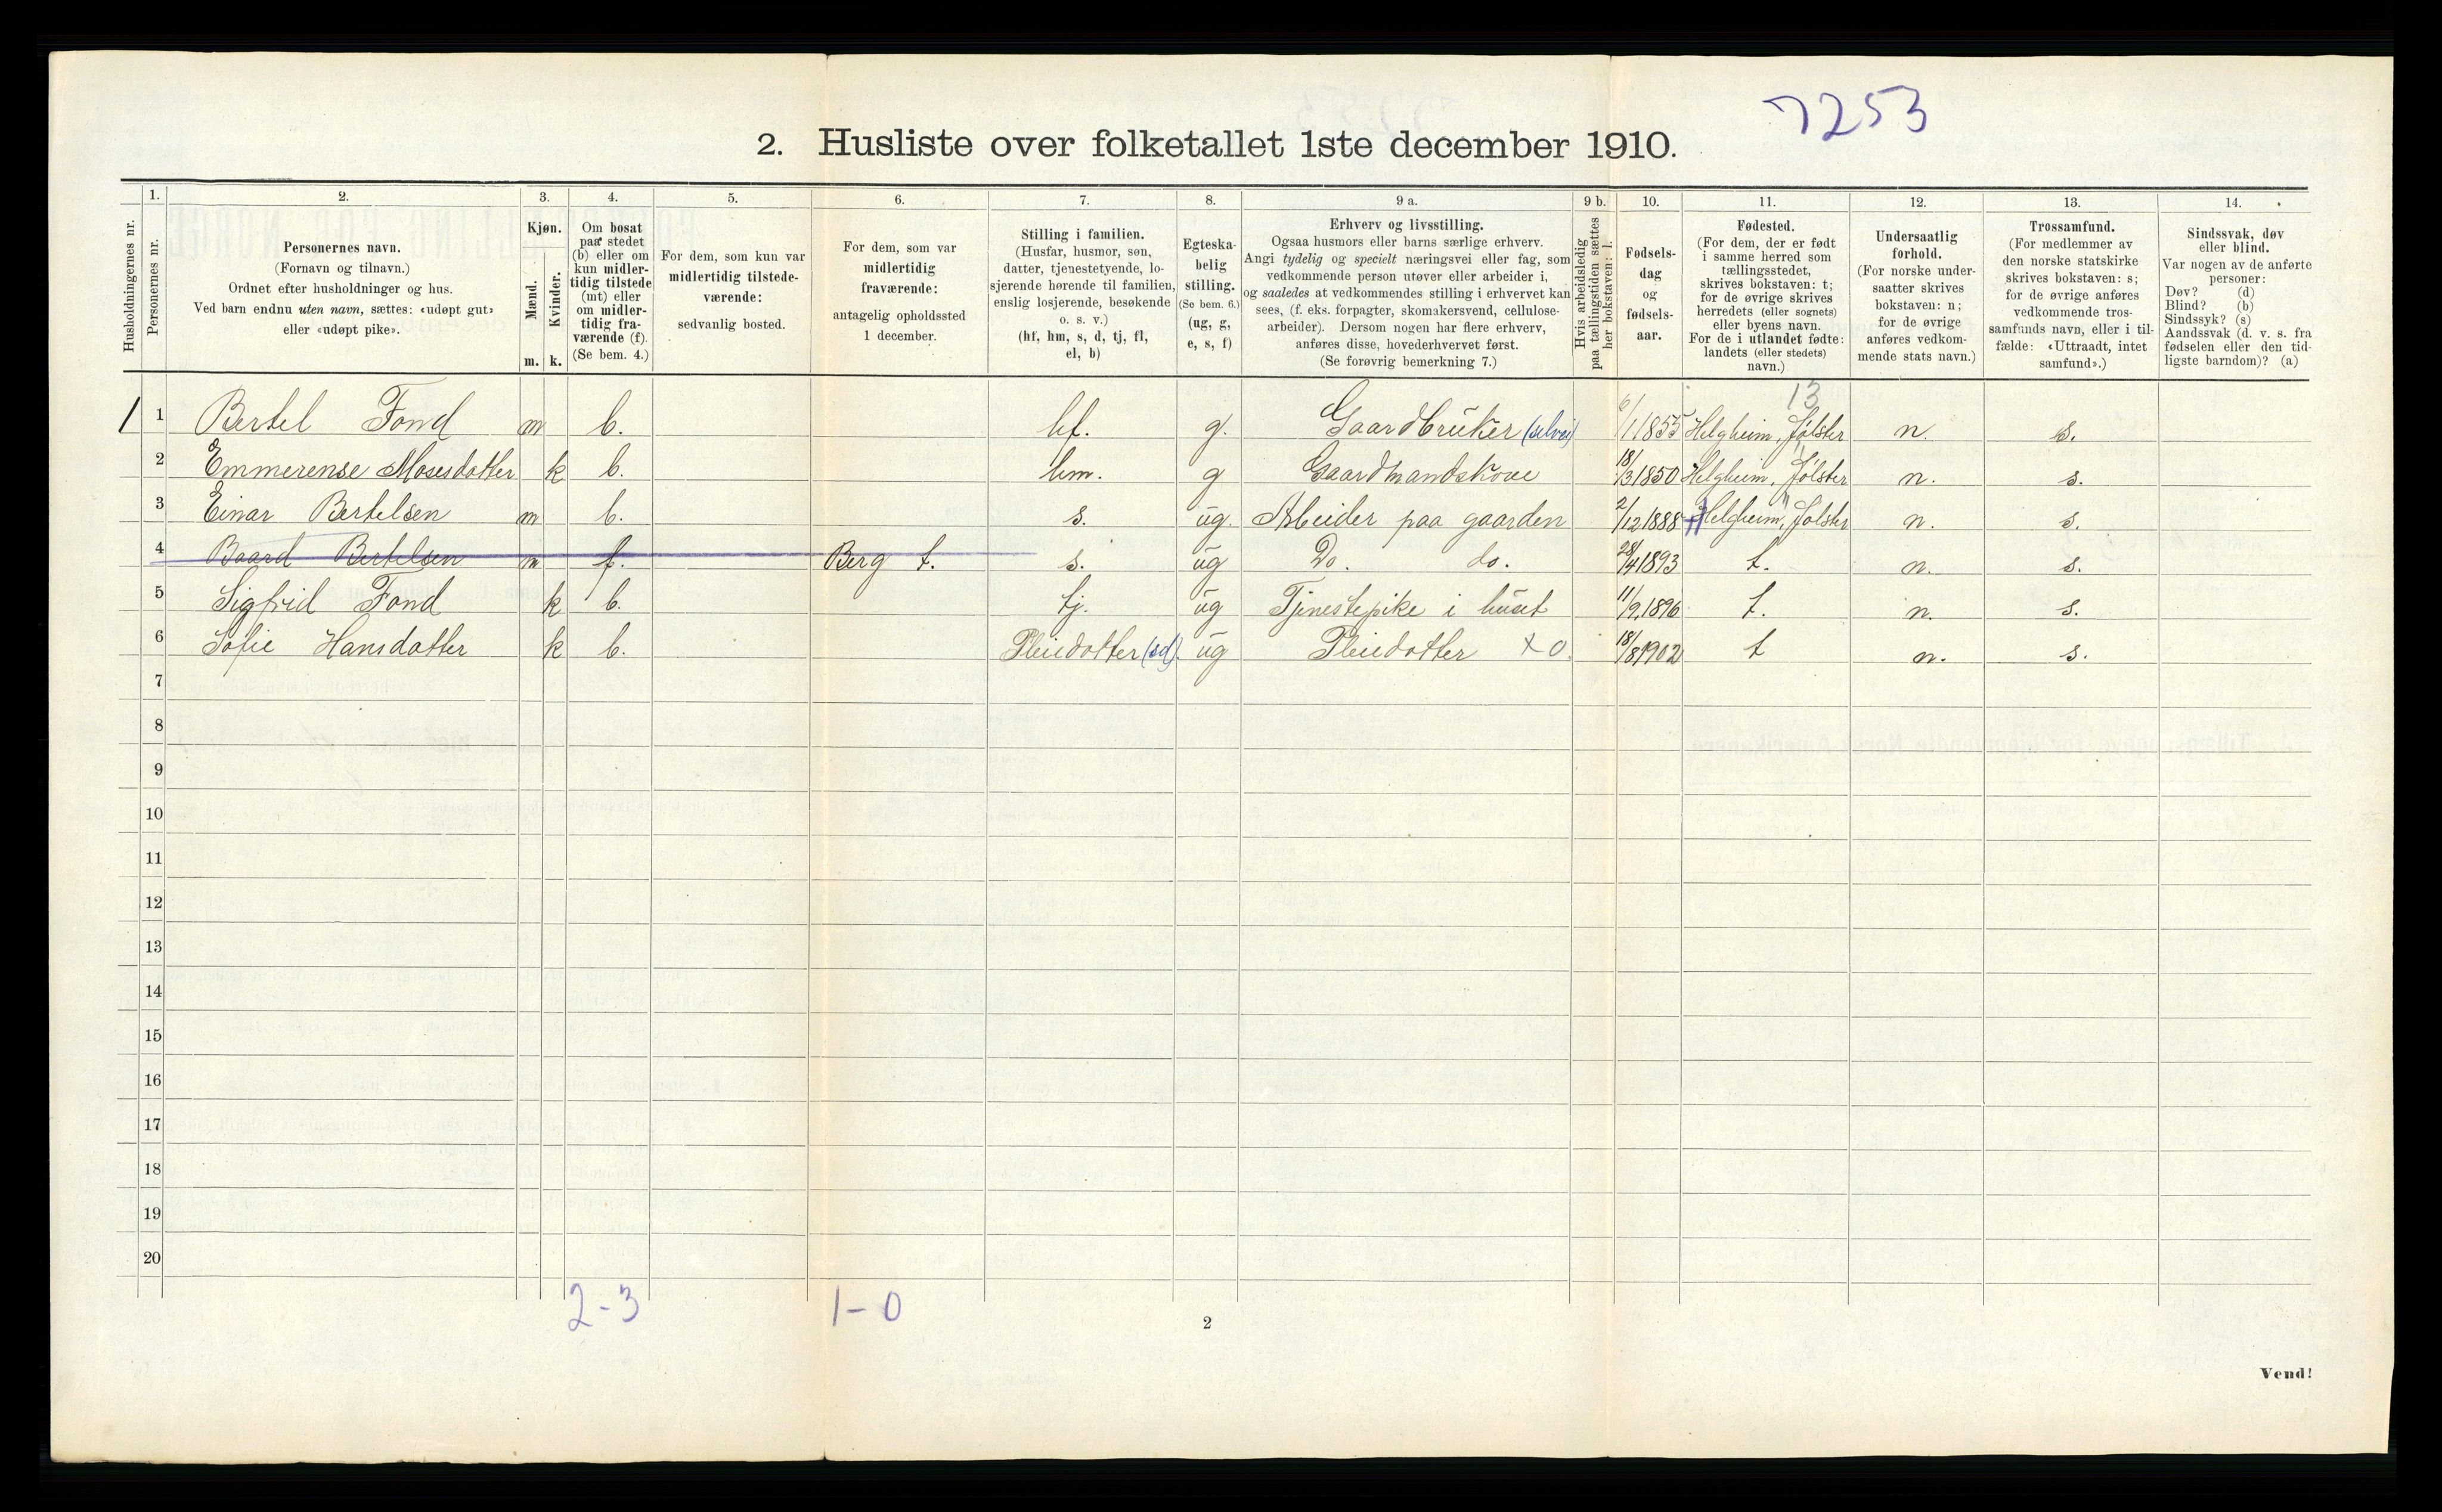 7253
2. Husliste over folketallet 1ste december 1910.
Husholdningernes nr.
1.
Personernes nr.
2.
Personernes navn.
(Fornavn og tilnavn.)
Ordnet efter husholdninger og hus.
Ved barn endnu uten navn, sættes: «udøpt gut»
eller «udøpt pike».
3.
Kjøn.
Mænd.
m.
Kvinder.
k.
4.
Om bosat
paa stedet
(b) eller om
kun midler-
tidig tilstede
(mt) eller
om midler-
tidig fra-
værende (f).
(Se bem. 4.)
5.
For dem, som kun var
midlertidig tilstede-
værende:
sedvanlig bosted.
6.
For dem, som var
midlertidig
fraværende:
antagelig opholdssted
1 december.
7.
Stilling i familien.
(Husfar, husmor, søn,
datter, tjenestetyende, lo-
sjerende hørende til familien,
enslig losjerende, besøkende
o. s. v.)
(hf, hm, s, d, tj, fl,
el, b)
8.
Egteska-
belig
stilling.
(Se bem. 6.)
(ug, g,
e, s, f)
9 a.
Erhverv og livsstilling.
Ogsaa husmors eller barns særlige erhverv.
Angi tydelig og specielt næringsvei eller fag, som
vedkommende person utøver eller arbeider i,
og saaledes at vedkommendes stilling i erhvervet kan
sees, (f. eks. forpagter, skomakersvend, cellulose-
arbeider). Dersom nogen har flere erhverv,
anføres disse, hovederhvervet først.
(Se forøvrig bemerkning 7.)
9 b.
Hvis arbeidsledig
paa tællingstiden sættes
her bokstaven: l.
10.
Fødsels-
dag
og
fødsels-
aar.
11.
Fødested.
(For dem, der er født
i samme herred som
tællingsstedet,
skrives bokstaven: t;
for de øvrige skrives
herredets (eller sognets)
eller byens navn.
For de i utlandet fødte:
landets (eller stedets)
navn.)
12.
Undersaatlig
forhold.
(For norske under-
saatter skrives
bokstaven: n;
for de øvrige
anføres vedkom-
mende stats navn.)
13.
Trossamfund.
(For medlemmer av
den norske statskirke
skrives bokstaven: s;
for de øvrige anføres
vedkommende tros-
samfunds navn, eller i til-
fælde: «Uttraadt, intet
samfund».)
14.
Sindssvak, døv
eller blind.
Var nogen av de anførte
personer:
Døv? (d)
Blind? (b)
Sindssyk? (s)
Aandssvak (d. v. s. fra
fødselen eller den tid-
ligste barndom)? (a)
13
1 1 Bertel Fond m b. hf. g. Gaardbruker (selvei) 6/1 1855 Helgheim, Jølster n. s.
2 Emmerense Mosesdatter k b. hm. g Gaardmandskone 18/3 1850 Helgheim, Jølster n. s.
3 Einar Bertelsen m b. s. ug. Arbeider paa gaarden 2/12 1888 Helgheim, Jølster n. s.
4 Baard Bertelsen m f. Berg t. s. ug Do. do. 28/4 1893 t. n. s.
5 Sigfrid Fond k b. tj. ug Tjenestepike i huset 11/9 1896 t. n. s.
6 Sofie Hansdatter k b. Pleiedatter (sd). ug Pleiedatter x 0. 18/8 1902 t n. s.
7
8
9
10
11
12
13
14
15
16
17
18
19
20
2-3 1-0
2
Vend!